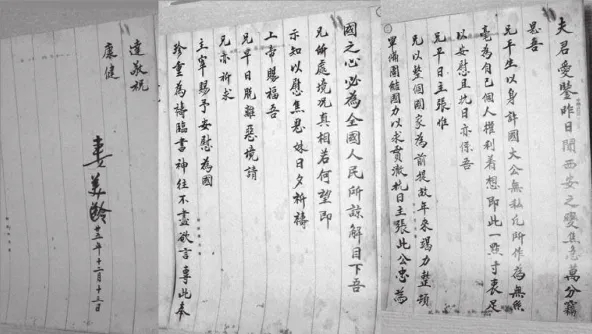 夫君愛鑒昨日聞西安之變焦急萬分竊
思吾
兄平生以身許國大公無私凡所作為無絲
毫為自己個人權利着想即此一點寸衷足
以安慰且抗日亦係吾
兄平日主張惟
兄以整個國家為前提故年來竭力整頓
軍備團結國力以求貫澈抗日主張此公忠為
國之心必為全國人民所諒解目下吾
兄所處境况真相若何望即
示知以慰焦思妹日夕祈禱
上帝賜福吾
兄早日脱離惡境請
兄亦祈求
主宰賜予安慰為國
珍重為禱臨書神往不盡欲言專此奉
達敬祝
康健
妻美齡 廿五年十二月十三日